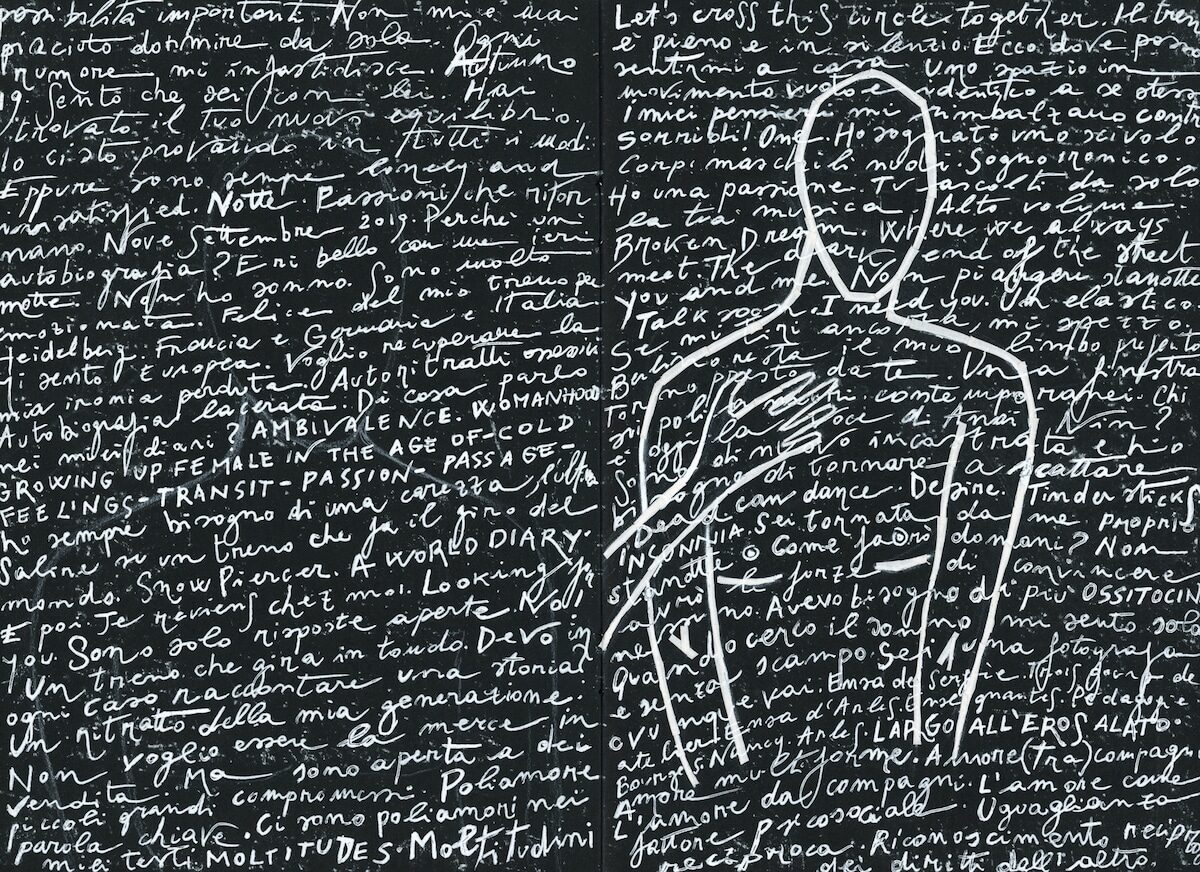 possibilità importanti Non mi è mai
piaciuto dormire da sola. Ogni
rumore mi infastidisce. Autunno
19 Sento che sei con lei Hai
trovato il tuo nuovo equilibrio.
Io ci sto provando in tutti i modi.
Eppure sono sempre lonely and
unsatisfied. Notte. Passioni, che ritor
nano Nove Settembre 2019. Perché un'
autobiografia? Eri bello con me ieri
notte. Non ho sonno. Sono molto
emozionata. Felice del mio treno per
Heidelberg. Francia e Germania e Italia
Mi sento Europea. Voglio recuperare la
mia ironia perduta. Autoritratti
Autobiografia lacerata. Di cosa parlo
nei miei diari? AMBIVALENCE. WOMANHOOD
GROWING UP FEMALE IN THE AGE OF-COLD
FEELINGS-TRANSIT-PASSION PASSAGE-
ho sempre bisogno di una carezza,
Salire su un treno che fa il giro del
mondo. SnowPiercer. A WORLD DIARY.
E poi Je reviens chez moi. Looking for
you. Sono solo risposte aperte. No!
Un treno che gira in tondo. Devo in
ogni caso raccontare una storia
Un ritratto della mia generazione.
Non voglio essere la merce in
vendita Ma sono aperta a dei
piccoli grandi compromessi. Poliamore
parola chiave. Ci sono poliamori nei
miei testi MOLTITUDES Moltitudini
Let's cross this circle together. Il treno
è pieno e in silenzio. Ecco dove posso
sentirmi a casa Uno spazio in
movimento vuoto e identico a se stesso
I miei pensieri mi rimbalzano contro
Sorridi! Ho sognato uno scivolo
Corpi maschili nudi. Sogno ironico.
Ho una passione. Tu ascolti da sola
la tua musica. Alto volume
Broken Dream. Where we always
meet. The dark end of the street
You and me. Non piangere stanotte
Talk soon. I need you. Un elastico
Se mi tiri ancora, mi spezzo.
il mio limbo preferito
presto da te Una finestra
contemporanei. Chi
oggi la voce di Anaïs Nin?
di nuovo incastrata e ho
bisogno di tornare a scattare
can dance. Desire. Tindersticks
INCONNUA Sei tornata da me PROPRIO
stanotte Come farò domani? Non
le forze di convincere
no. Avevo bisogno di più OSSITOCINA
cerco il sonno mi sento sola
e senza scampo Sei una fotografa
vai.
d'Arles. Enseignantes. Pédagogie
Nancy Arles LARGO ALL'EROS ALATO
Amore multiforme. Amore (tra) compagni
L'amore dei compagni. L'amore come
fattore Psicosociale. Uguaglianza
reciproca. Riconoscimento recipro
dei diritti dell'altro.